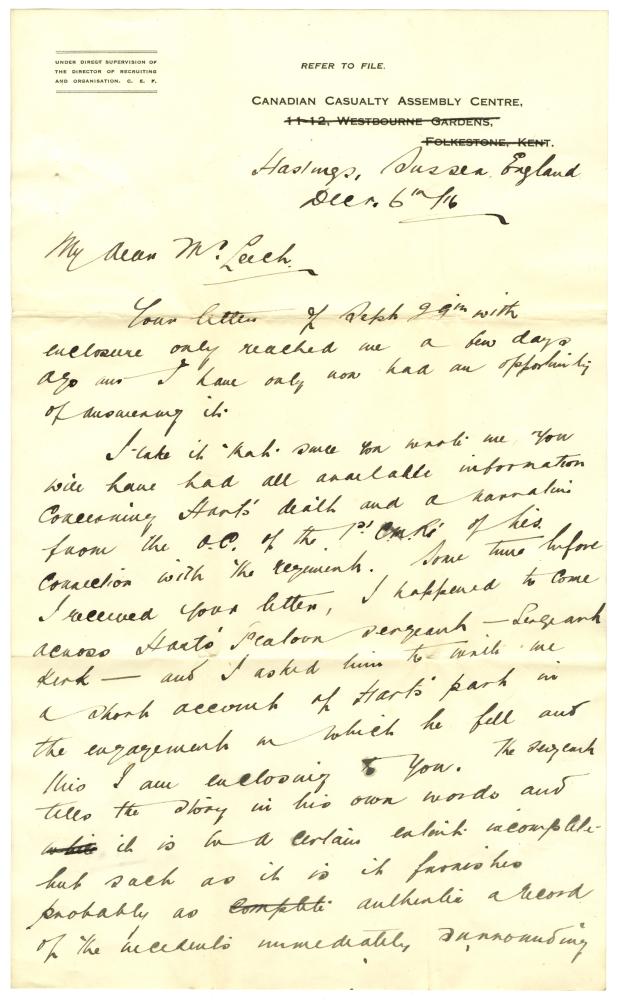 UNDER DIRECT SUPERVISION OF
THE DIRECTOR OF RECRUITING
AND ORGANISATION, C. E. F.
REFER TO FILE.
CANADIAN CASUALTY ASSEMBLY CENTRE,
11-12, WESTBOURNE GARDENS,
FOLKESTONE, KENT.
Hastings, Sussex. England
Decr. 6th/16
My dear Mr. Leech.
Your letter of Sept 29th with
enclosure only reached me a few days
ago and I have only now had an opportunity
of answering it.
I take it that since you wrote me you
will have had all available information
concerning Harts' death and a narrative
from the O.C. of the 1st C.M.R's of his
connection with the regiment. Some time before
I received your letter, I happened to come
across Harts' Platoon Sergeant — Sergeant
Kirk — and I asked him to write me
a short account of Harts' part in
the engagement in which he fell and
this I am enclosing to you. The sergeant
tells the story in his own words and
while it is to a certain extent incomplete
but such as it is it furnishes
probably as complete authentic a record
of the incidents immediately surrounding